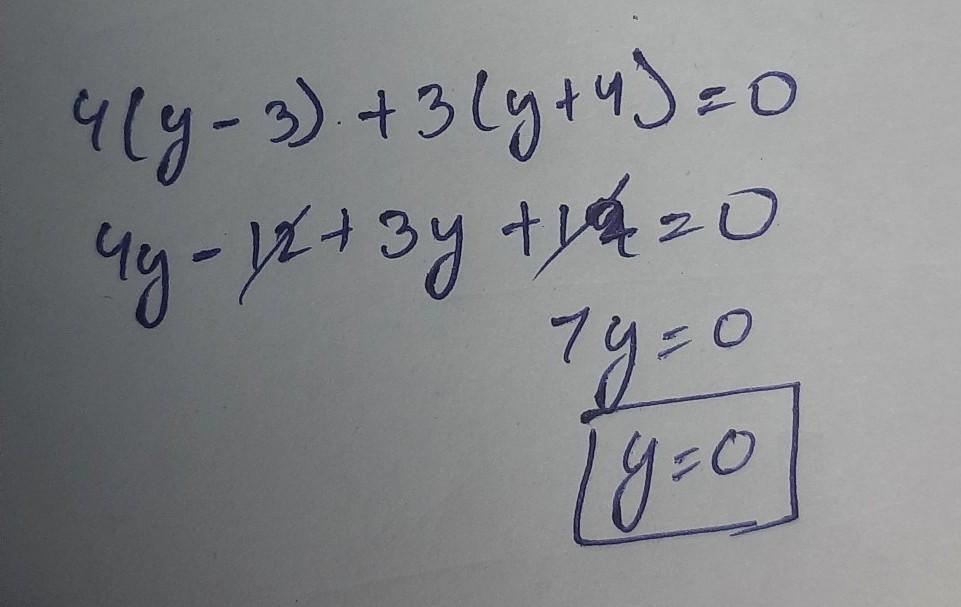 4(y-3) +3(y+4)=0
4y-12+3y+12=0
7y=0
y=0